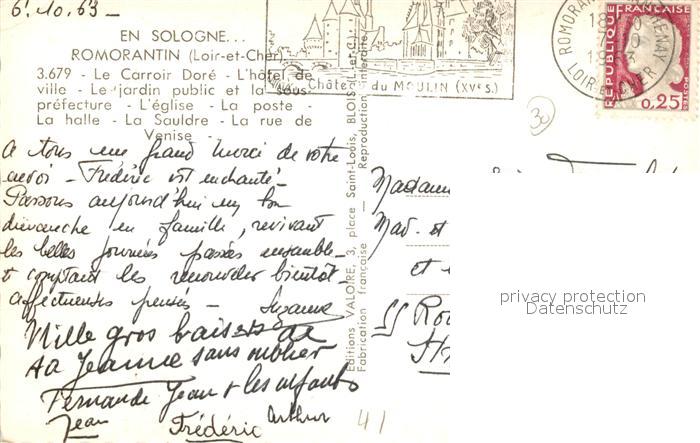 6.10.63 -
EN SOLOGNE...
ROMORANTIN (Loir-et-Cher)
3.679 - Le Carroir Doré - L'hôtel de
ville - Le jardin public et la sous-
préfecture - L'église - La poste -
La halle - La Sauldre - La rue de
Venise
Château du MOULIN (XVe S.)
ROMORANTIN
LOIR CHER
REPUBLIQUE FRANÇAISE
0,25
30
A tous un grand merci de votre
envoi - Frédéric est enchanté -
Passons aujourd'hui un bon
dimanche en famille, revivant
les belles journées passées ensemble
& comptant les renouveler bientôt
Affectueuses pensées - Suzanne
Mille gros baisers de
ta Jeanne sans oublier
Fernande Jean & les enfants
Jean Frédéric Arthur
Editions VALOIRE, 3, place Saint-Louis, BLOIS (L.-et-C.)
Fabrication française - Reproduction interdite
Madame
Mad. et
et
55 Rou
41
privacy protection
Datenschutz